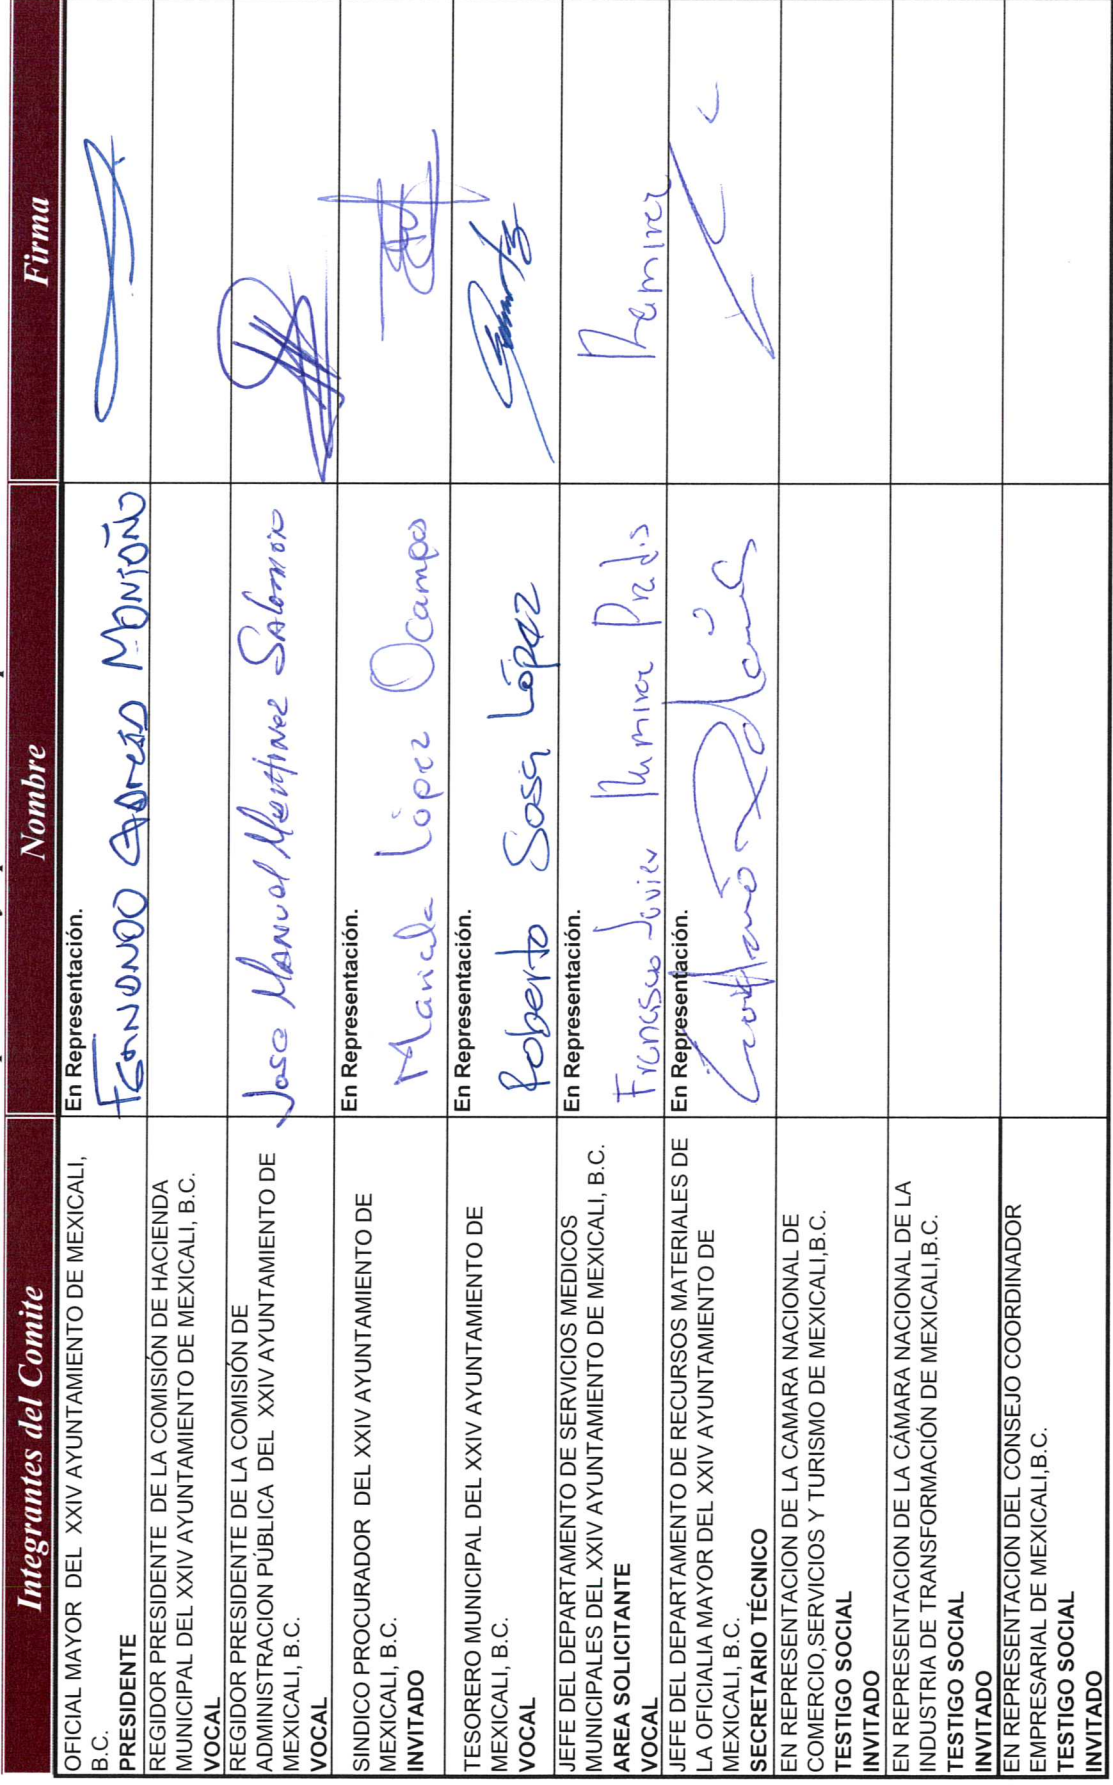 Integrantes del Comite Nombre Firma
OFICIAL MAYOR DEL XXIV AYUNTAMIENTO DE MEXICALI,
B.C.
PRESIDENTE
En Representación.
FERNANDO MONTAÑO
REGIDOR PRESIDENTE DE LA COMISIÓN DE HACIENDA
MUNICIPAL DEL XXIV AYUNTAMIENTO DE MEXICALI, B.C.
VOCAL
REGIDOR PRESIDENTE DE LA COMISIÓN DE
ADMINISTRACION PÚBLICA DEL XXIV AYUNTAMIENTO DE
MEXICALI, B.C.
VOCAL
Jose Manuel Martinez Salomon
SINDICO PROCURADOR DEL XXIV AYUNTAMIENTO DE
MEXICALI, B.C.
INVITADO
En Representación.
Maricela López Ocampo
TESORERO MUNICIPAL DEL XXIV AYUNTAMIENTO DE
MEXICALI, B.C.
VOCAL
En Representación.
Roberto Sosa López
JEFE DEL DEPARTAMENTO DE SERVICIOS MEDICOS
MUNICIPALES DEL XXIV AYUNTAMIENTO DE MEXICALI, B.C.
AREA SOLICITANTE
VOCAL
En Representación.
Francisco Javier Ramirez
Ramirez
JEFE DEL DEPARTAMENTO DE RECURSOS MATERIALES DE
LA OFICIALIA MAYOR DEL XXIV AYUNTAMIENTO DE
MEXICALI, B.C.
SECRETARIO TÉCNICO
En Representación.
EN REPRESENTACION DE LA CAMARA NACIONAL DE
COMERCIO,SERVICIOS Y TURISMO DE MEXICALI,B.C.
TESTIGO SOCIAL
INVITADO
EN REPRESENTACION DE LA CÁMARA NACIONAL DE LA
INDUSTRIA DE TRANSFORMACIÓN DE MEXICALI,B.C.
TESTIGO SOCIAL
INVITADO
EN REPRESENTACION DEL CONSEJO COORDINADOR
EMPRESARIAL DE MEXICALI,B.C.
TESTIGO SOCIAL
INVITADO